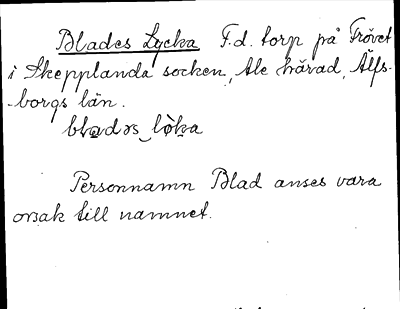 Blades Lycka F.d. torp på Frövet
i Skepplanda socken, Ale härad, Älfs-
borgs län.
bladəs lø̀ka
Personnamn Blad anses vara
orsak till namnet.